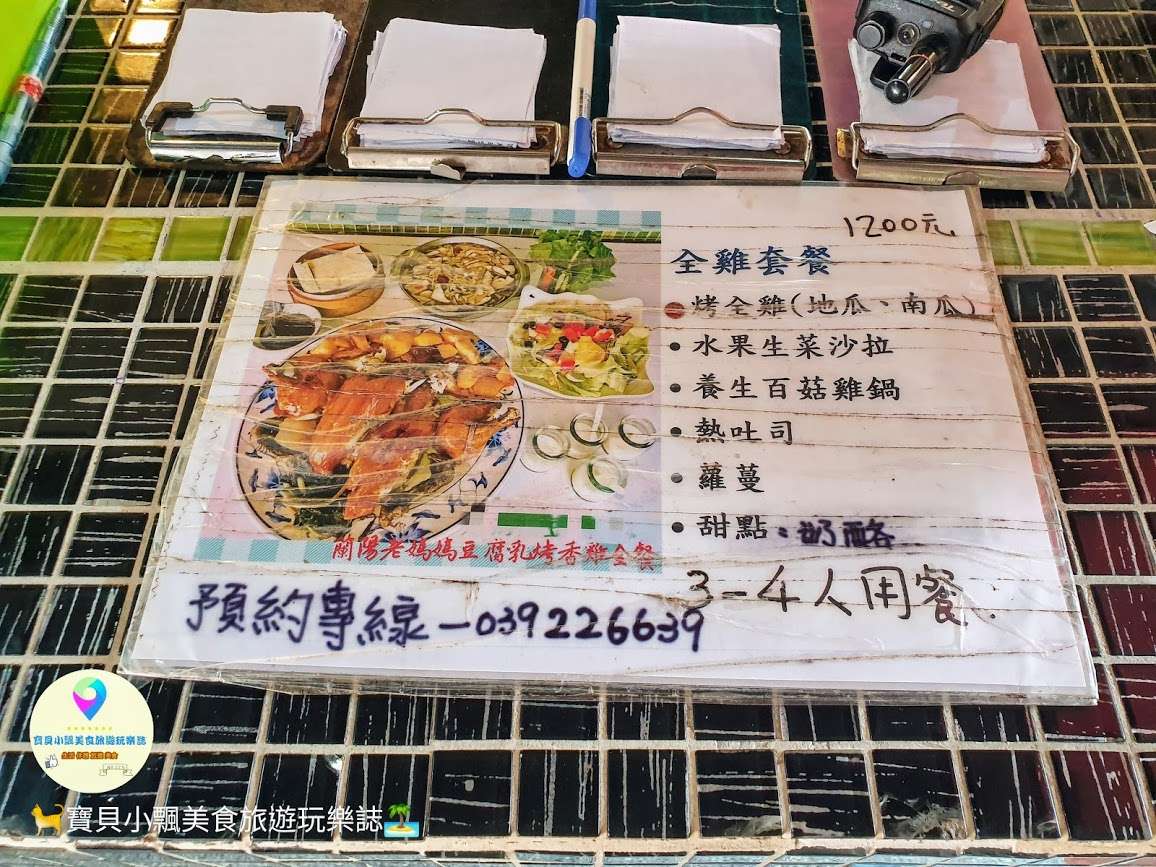 1200元
全雞套餐
烤全雞(地瓜、南瓜)
• 水果生菜沙拉
• 養生百菇雞鍋
• 熱吐司
• 蘿蔓
• 甜點：奶酪
蘭陽老媽媽豆腐乳烤香雞全餐
3-4人用餐
預約專線-039226639
寶貝小飄美食旅遊玩樂誌
寶貝小飄美食旅遊玩樂誌